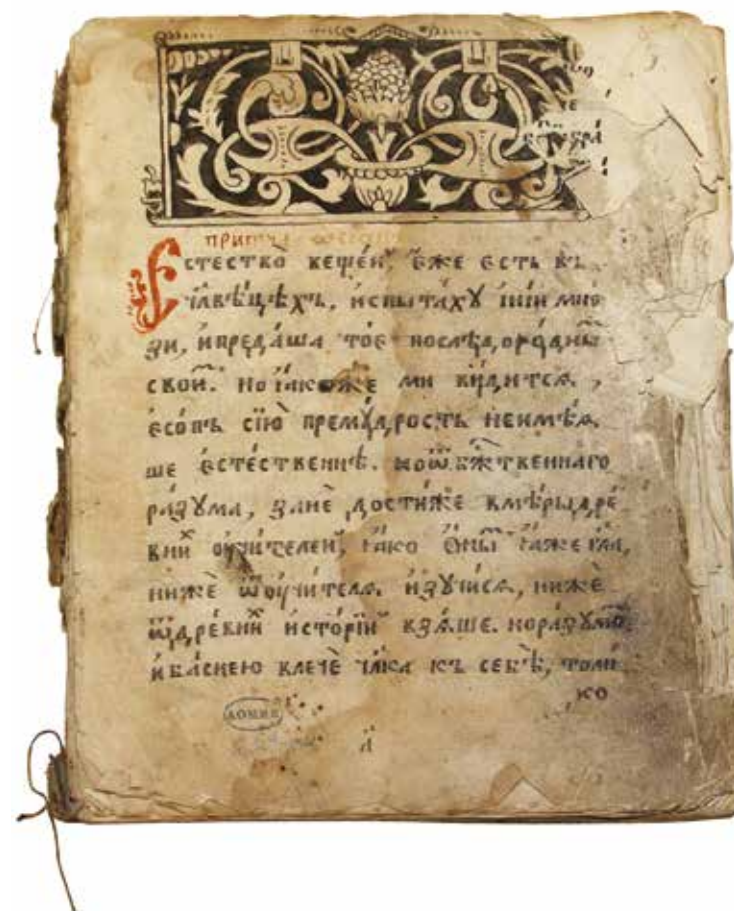 Естество вещей, еже есть въ
члвѣцѣхъ, испытаху инїи мно
зи, и предаша тое послѣдороднымъ
свои҆м. но ꙗкоже ми видится,
есопъ сїю премꙋдрость неимѣꙗ
ше естественнѣ. но ѿ бжтвеннаго
разꙋма, зане достиже в мѣры дре
вни оучителей, ꙗко ѻны
ниже ѿ оучителꙗ изꙋчисꙗ, ниже
ѿ древни исторїй взꙗше. но разꙋмо
и баснею влече члка къ себѣ, толи
ко